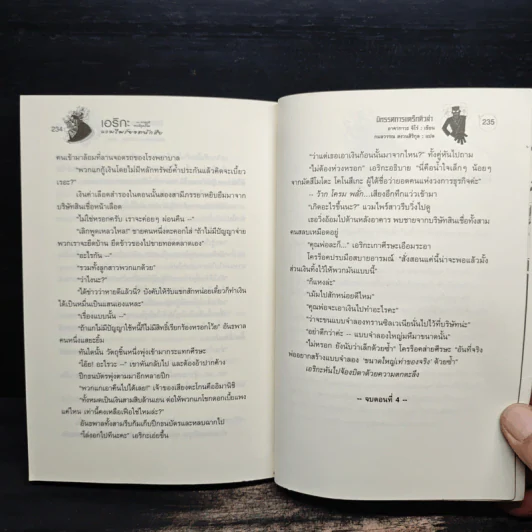 234
เอริกะ
คนเข้ามาล้อมที่ลานจอดรถของโรงพยาบาล
"พวกแกกู้เงินโดยไม่มีหลักทรัพย์ค้ำประกันแล้วคิดจะเบี้ยวเรอะ?"
เงินค่าเลือดสำรองในตอนนั้นสองสามีภรรยาคงยืมมาจาก
บริษัทสินเชื่อหน้าเลือด
"ไม่ใช่หรอกครับ เราจะค่อยๆ ผ่อนคืน —"
"เลิกพูดเหลวไหล!" ชายคนหนึ่งตะคอกใส่ "ถ้าไม่มีปัญญาจ่าย
พวกเราจะยึดบ้าน ยึดข้าวของไปขายทอดตลาดเอง"
"อะไรกัน —"
"รวมทั้งลูกสาวพวกแกด้วย"
"ว่าไงนะ?"
"ได้ข่าวว่าหายดีแล้วนี่? บังคับให้รับแขกสักหน่อยเดี๋ยวก็ทำเงิน
ได้เป็นหมื่นเป็นแสนเองแหละ"
"เรื่องแบบนั้น —"
"ถ้าแกไม่มีปัญญาใช้หนี้ก็ไม่มีสิทธิ์เรียกร้องหรอกโว้ย" อันธพาล
คนหนึ่งแสยะยิ้ม
ทันใดนั้น วัตถุชิ้นหนึ่งพุ่งเข้ามากระแทกศีรษะ
"โอ๊ย! อะไรวะ —" เขาหันกลับไป และต้องอ้าปากค้าง
ปึกธนบัตรพุ่งตามมาอีกหลายปึก
"พวกแกเอาคืนไปได้เลย!" เจ้าของเสียงตะโกนคือฮิมานิชิ
"ทั้งหมดเป็นเงินสามสิบล้านเยน พ่อให้พวกแกไขกดอกเบี้ยแพง
แค่ไหน เท่านี้คงเหลือเฟือใช่ไหมล่ะ?"
อันธพาลทั้งสามรีบก้มเก็บปึกธนบัตรและหลบฉากไป
"ใส่งอกไปทีนะคะ" เอริกะเอ่ยขึ้น
นิทรรศการอดรักตัวดำ
อาคากาวะ จิโร่ : เขียน
235
"ว่าแต่เธอเอาเงินก้อนนั้นมาจากไหน?" ทั้งคู่หันไปถาม
"ไม่ต้องห่วงหรอก" เอริกะอธิบาย "นี่คือน้ำใจเล็กๆ น้อยๆ
จากมัตสึโมโตะ โคโนสึเกะ ผู้ได้ชื่อว่ายอดคนแห่งวงการธุรกิจค่ะ"
— รัก โครม พลั่ก... เสียงอึกทึกแว่วเข้ามา
"เกิดอะไรขึ้นนะ?" แวมไพร์สาวรีบวิ่งไปดู
เธอวิ่งอ้อมไปด้านหลังอาคาร พบชายจากบริษัทสินเชื่อทั้งสาม
คนสลบเหมือดอยู่
"คุณพ่อละก็..." เอริกะเกาศีรษะเอือมระอา
โครร็อคปรบมือสบายอารมณ์ "สั่งสอนแค่นี้น่าจะพอแล้วมั้ง
ส่วนเงินทิ้งไว้ให้พวกมันแบบนี้"
ก็แหงล่ะ
"เม้มไปสักหน่อยดีไหม"
"คุณพ่อจะเอาเงินไปทำอะไรคะ"
"ว่าจะขนแบบจำลองทรานซิลเวเนียนั่นไปไว้ที่บริษัทน่ะ"
"อย่าดีกว่าค่ะ — แบบจำลองใหญ่มหึมาขนาดนั้น"
"ไม่หรอก ยังนับว่าเล็กด้วยซ้ำ" โครร็อคส่ายศีรษะ "อันที่จริง
พ่ออยากสร้างแบบจำลอง 'ขนาดใหญ่เท่าของจริง' ด้วยซ้ำ"
เอริกะหันไปจ้องบิดาด้วยความตกตะลึง
-- จบตอนที่ 4 --